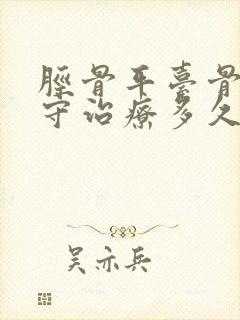 脛骨平臺骨
守治療多久
吴亦兵